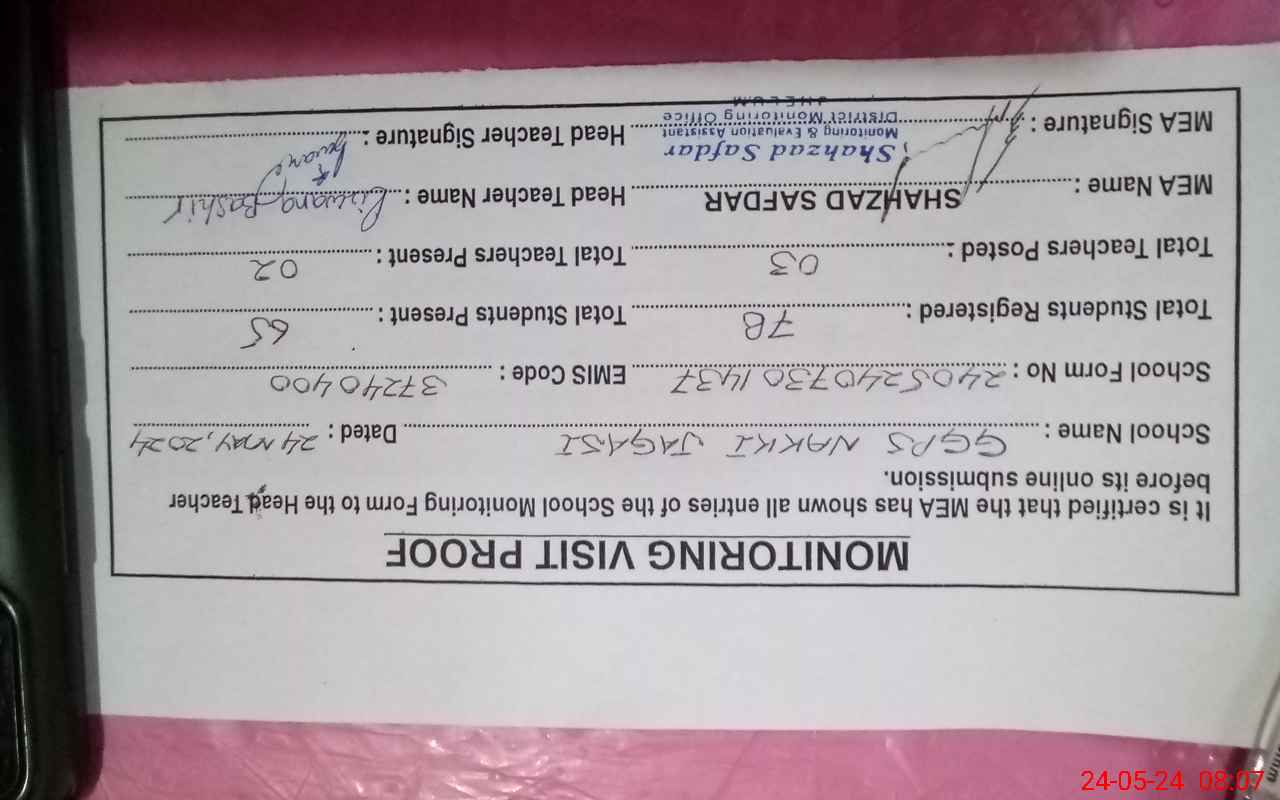 MONITORING VISIT PROOF
It is certified that the MEA has shown all entries of the School Monitoring Form to the Head Teacher
before its online submission.
School Name : GGPS NAKKI JAGASI Dated : 24 MAY, 2024
School Form No : 24052407301437 EMIS Code : 37240400
Total Students Registered : 78 Total Students Present : 65
Total Teachers Posted : 03 Total Teachers Present : 02
MEA Name : SHAHZAD SAFDAR Head Teacher Name : Rizwana Bashir
MEA Signature : Head Teacher Signature :
Shahzad Safdar
Monitoring & Evaluation Assistant
District Monitoring Office
JHELUM
24-05-24 08:07